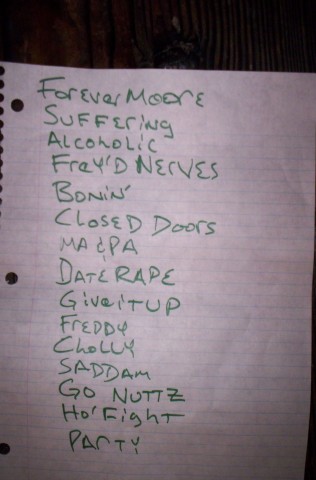 Forever Moore
Suffering
Alcoholic
Fray'D NERVES
Bonin'
Closed Doors
MA & PA
DATE RAPE
Give it UP
FREDDY
Cholly
SADDAM
Go NUTTZ
Ho' Fight
PARTY